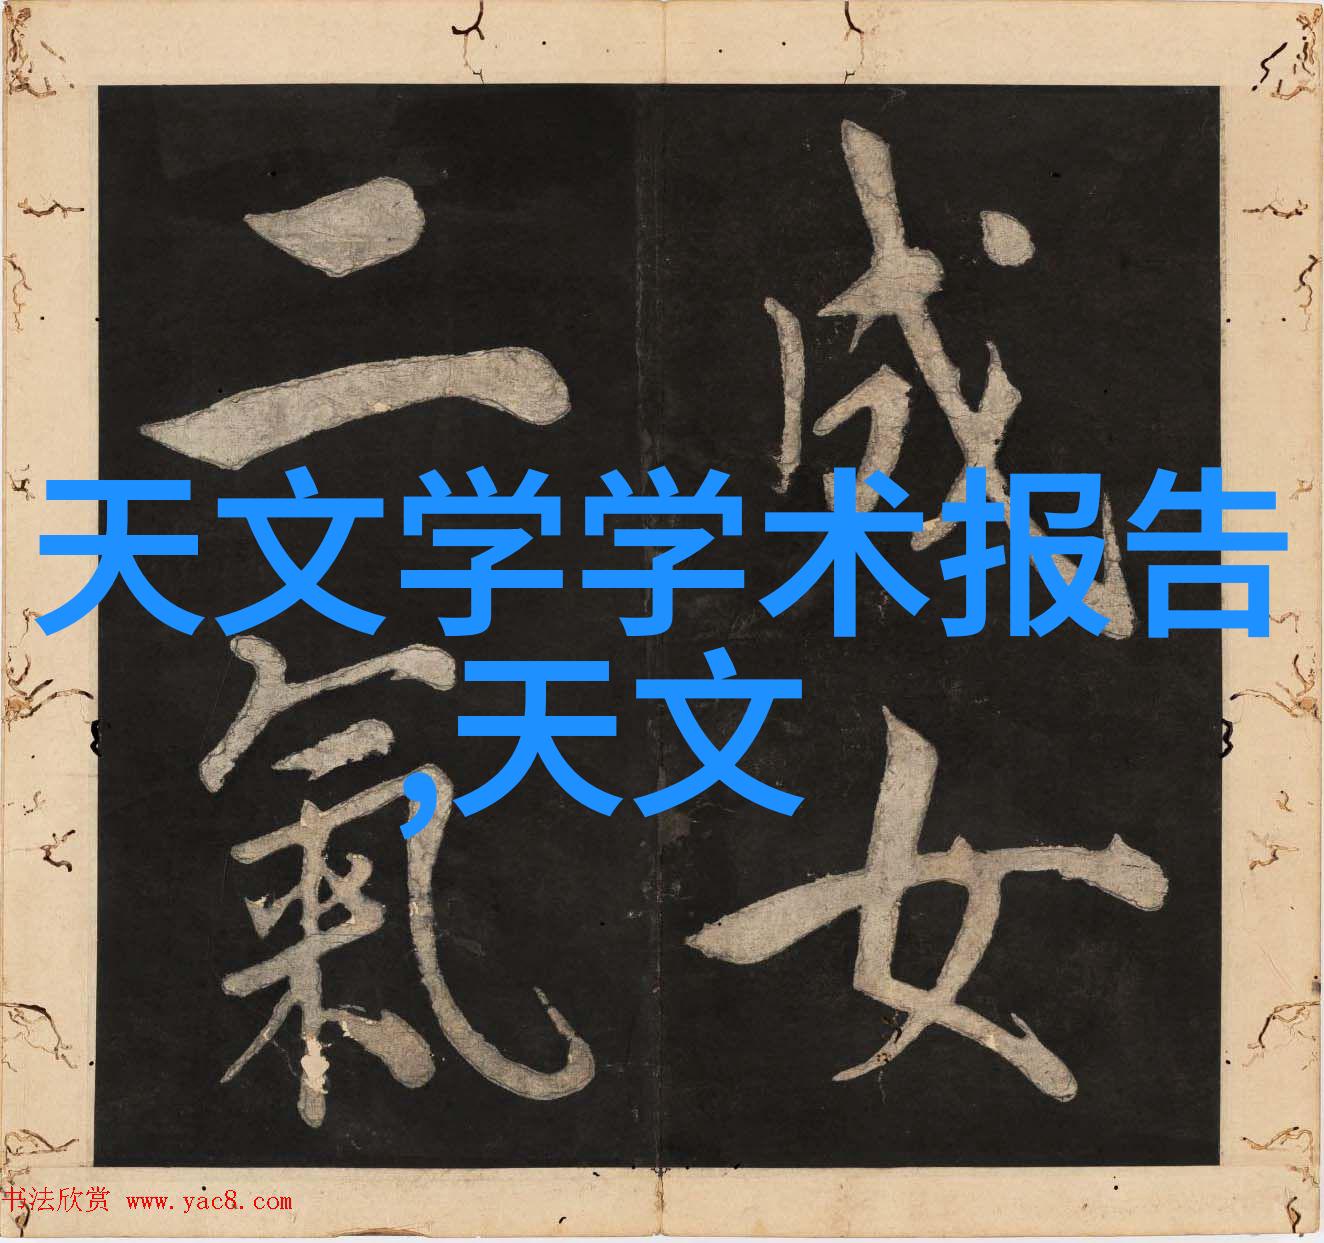 成女
二氣
天文学学术报告
,天文
书法欣赏 www.yac8.com